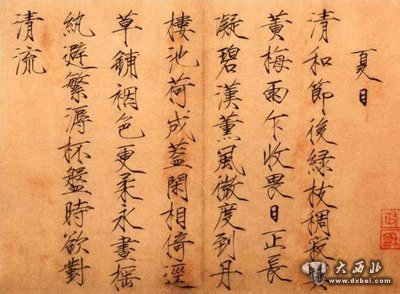 夏日
清和節後綠枝稠寂寞
黃梅雨乍收畏日正長
凝碧漢薰風微度到丹
樓池荷成蓋閑相倚逕
草鋪裀色更柔永晝搖
紈避繁溽杯盤時欲對
清流
大西北
www.dxbei.com